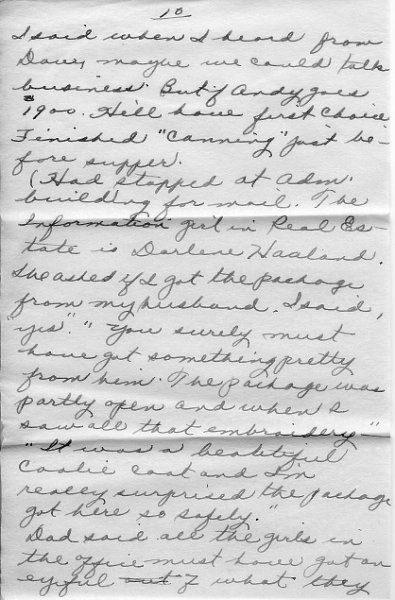 10
I said when I heard from
Dave, maybe we could talk
business. But if Andy goes
1900. He'll have first choice
Finished "canning" just be-
fore supper.
(Had stopped at Adm.
building for mail. The
Information girl in Real Es-
tate is Darlene Haaland.
She asked if I got the package
from my husband. I said,
"yes". "You surely must
have got something pretty
from him. The package was
partly open and when I
saw all that embroidery-"
"It was a beautiful
Coolie coat and I'm
really surprised the package
got here so safely."
Dad said all the girls in
the office must have got an
eyeful of what they